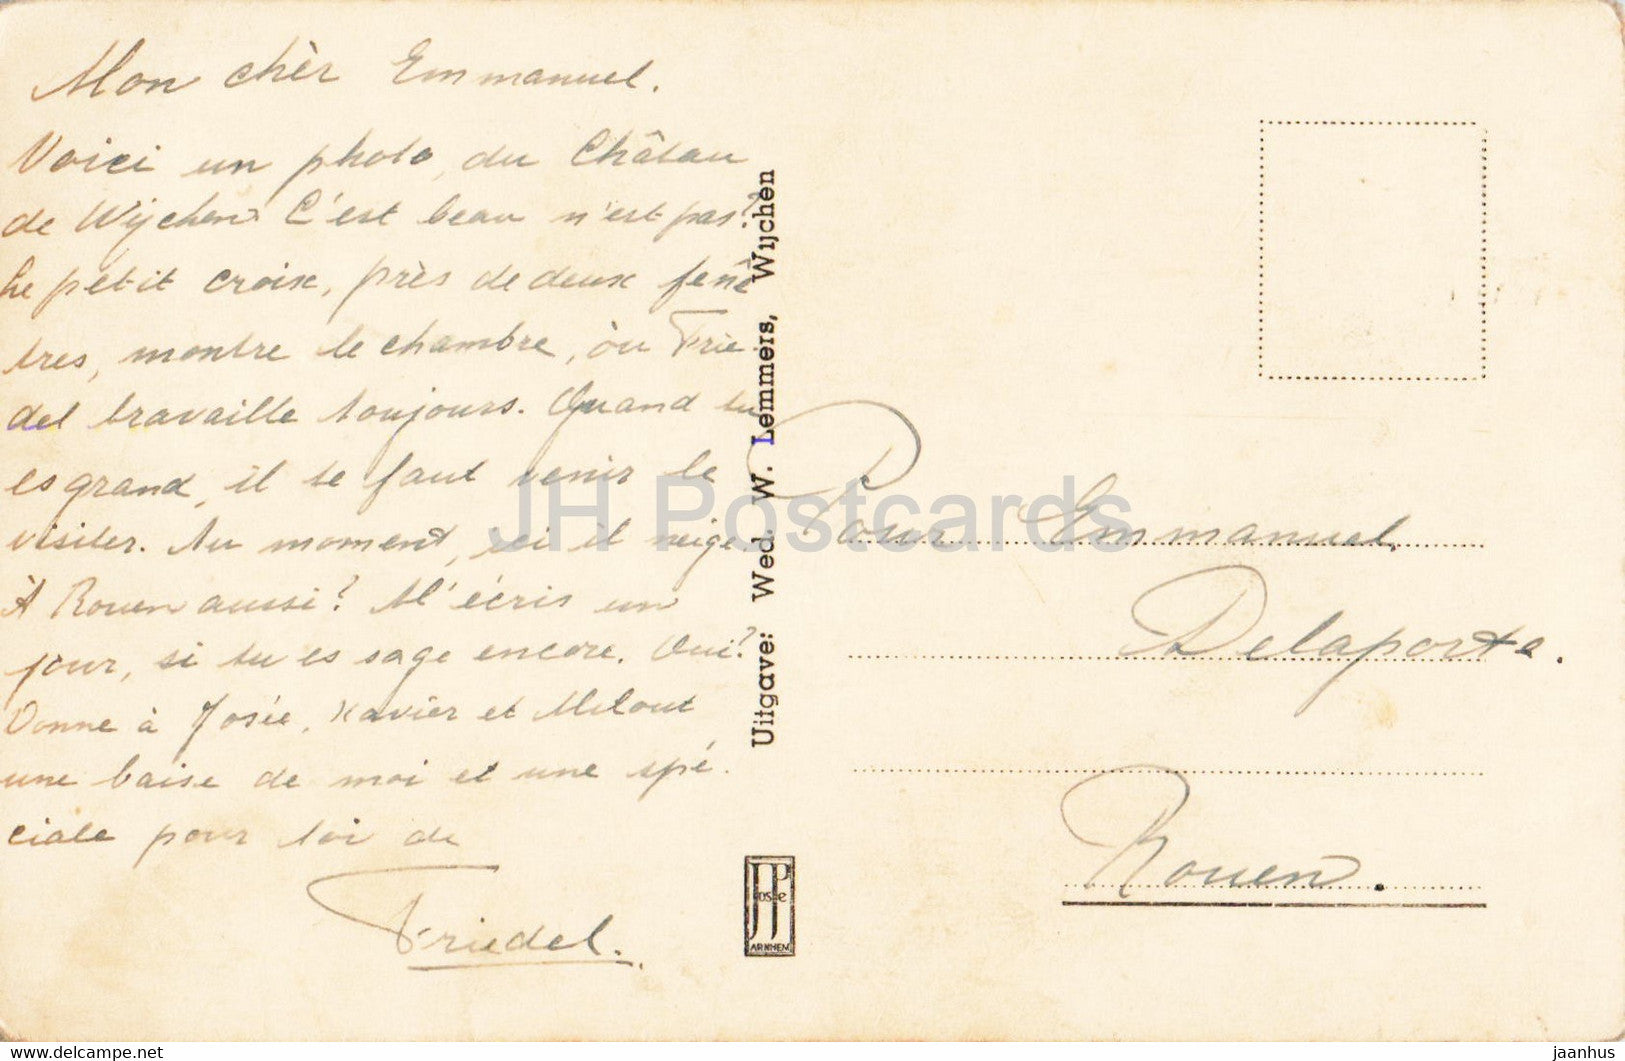 Mon chèr Emmanuel.
Voici un photo, du Châtau
de Wijchen. C'est beau n'est pas?
Le petit croix, près de deux fenê
tres, montre le chambre, òu Frie
del travaille toujours. Quand tu
es grand, il te faut venir le
visiter. Au moment, ici il neige.
À Rouen aussi? M'écris un
jour, si tu es sage encore. Oui?
Donne à Josée, Xavier et Milout
une baise de moi et une spé.
ciale pour toi de
Friedel.
Uitgave: Wed. W. Lemmers, Wijchen
JosPe
ARNHEM
Pour Emmanuel.
Delaporte.
Rouen.
JH Postcards
www.delcampe.net
jaanhus